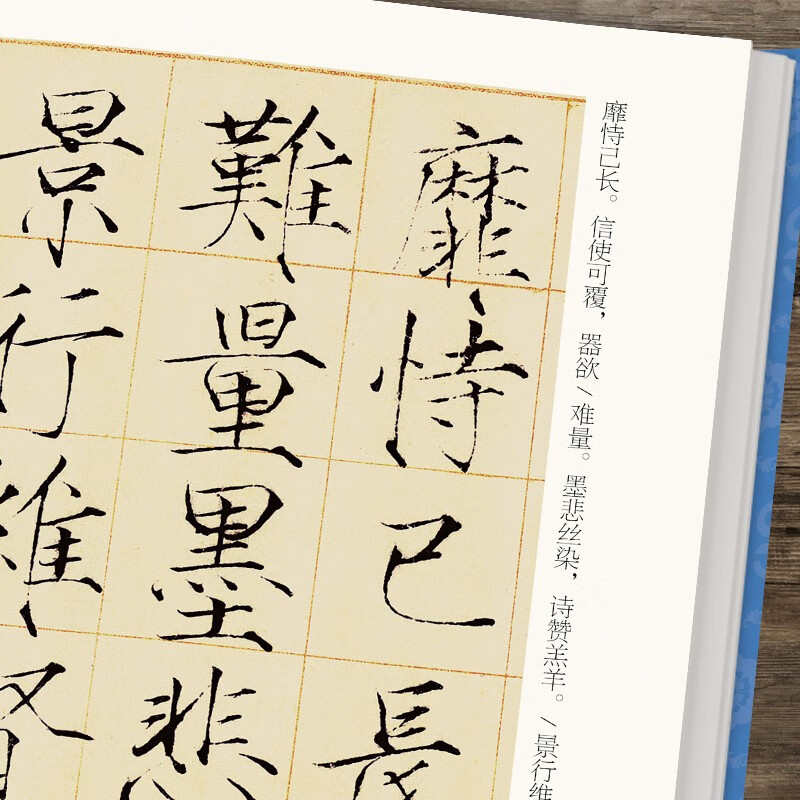 靡恃己長
難量墨悲
景行維賢
靡恃己长。信使可覆，器欲/难量。墨悲丝染，诗赞羔羊。/景行维